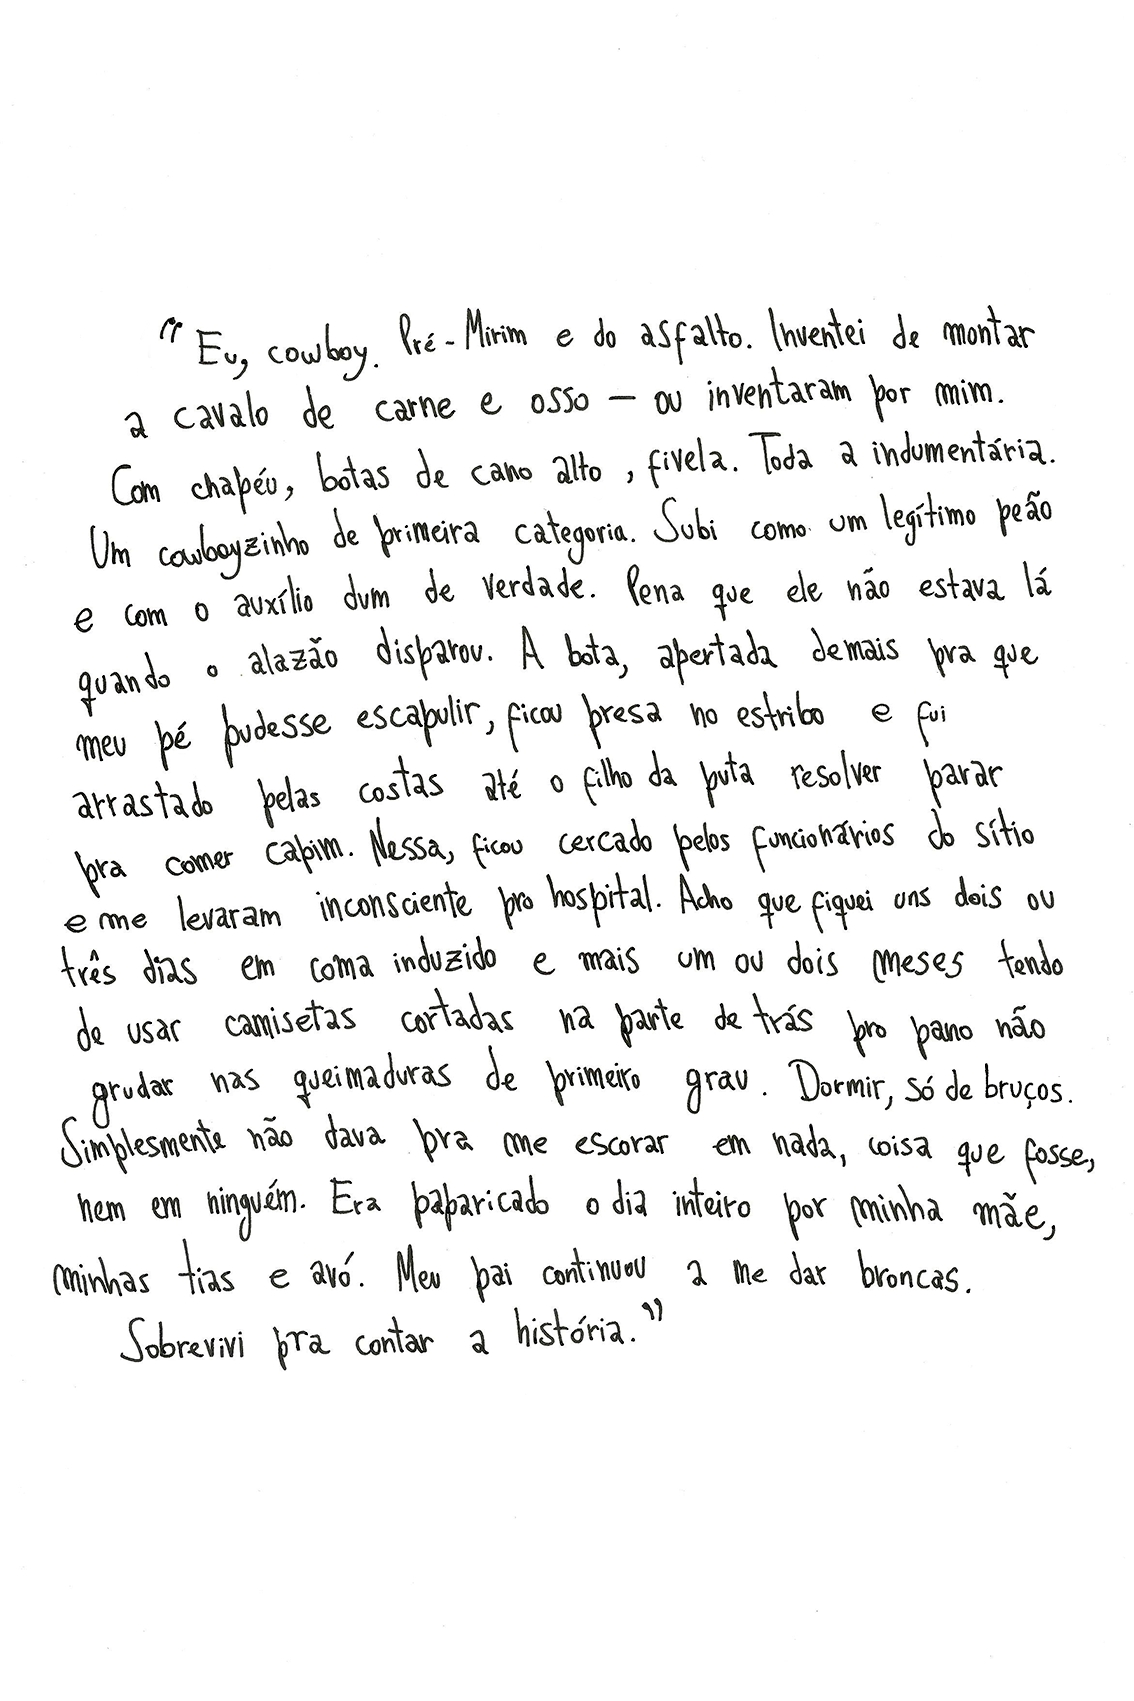 "Eu, cowboy. Pré-Mirim e do asfalto. Inventei de montar
a cavalo de carne e osso — ou inventaram por mim.
Com chapéu, botas de cano alto, fivela. Toda a indumentária.
Um cowboyzinho de primeira categoria. Subi como um legítimo peão
e com o auxílio dum de verdade. Pena que ele não estava lá
quando o alazão disparou. A bota, apertada demais pra que
meu pé pudesse escapulir, ficou presa no estribo e fui
arrastado pelas costas até o filho da puta resolver parar
pra comer capim. Nessa, ficou cercado pelos funcionários do sítio
e me levaram inconsciente pro hospital. Acho que fiquei uns dois ou
três dias em coma induzido e mais um ou dois meses tendo
de usar camisetas cortadas na parte de trás pro pano não
grudar nas queimaduras de primeiro grau. Dormir, só de bruços.
Simplesmente não dava pra me escorar em nada, coisa que fosse,
nem em ninguém. Era paparicado o dia inteiro por minha mãe,
minhas tias e avó. Meu pai continuou a me dar broncas.
Sobrevivi pra contar a história."